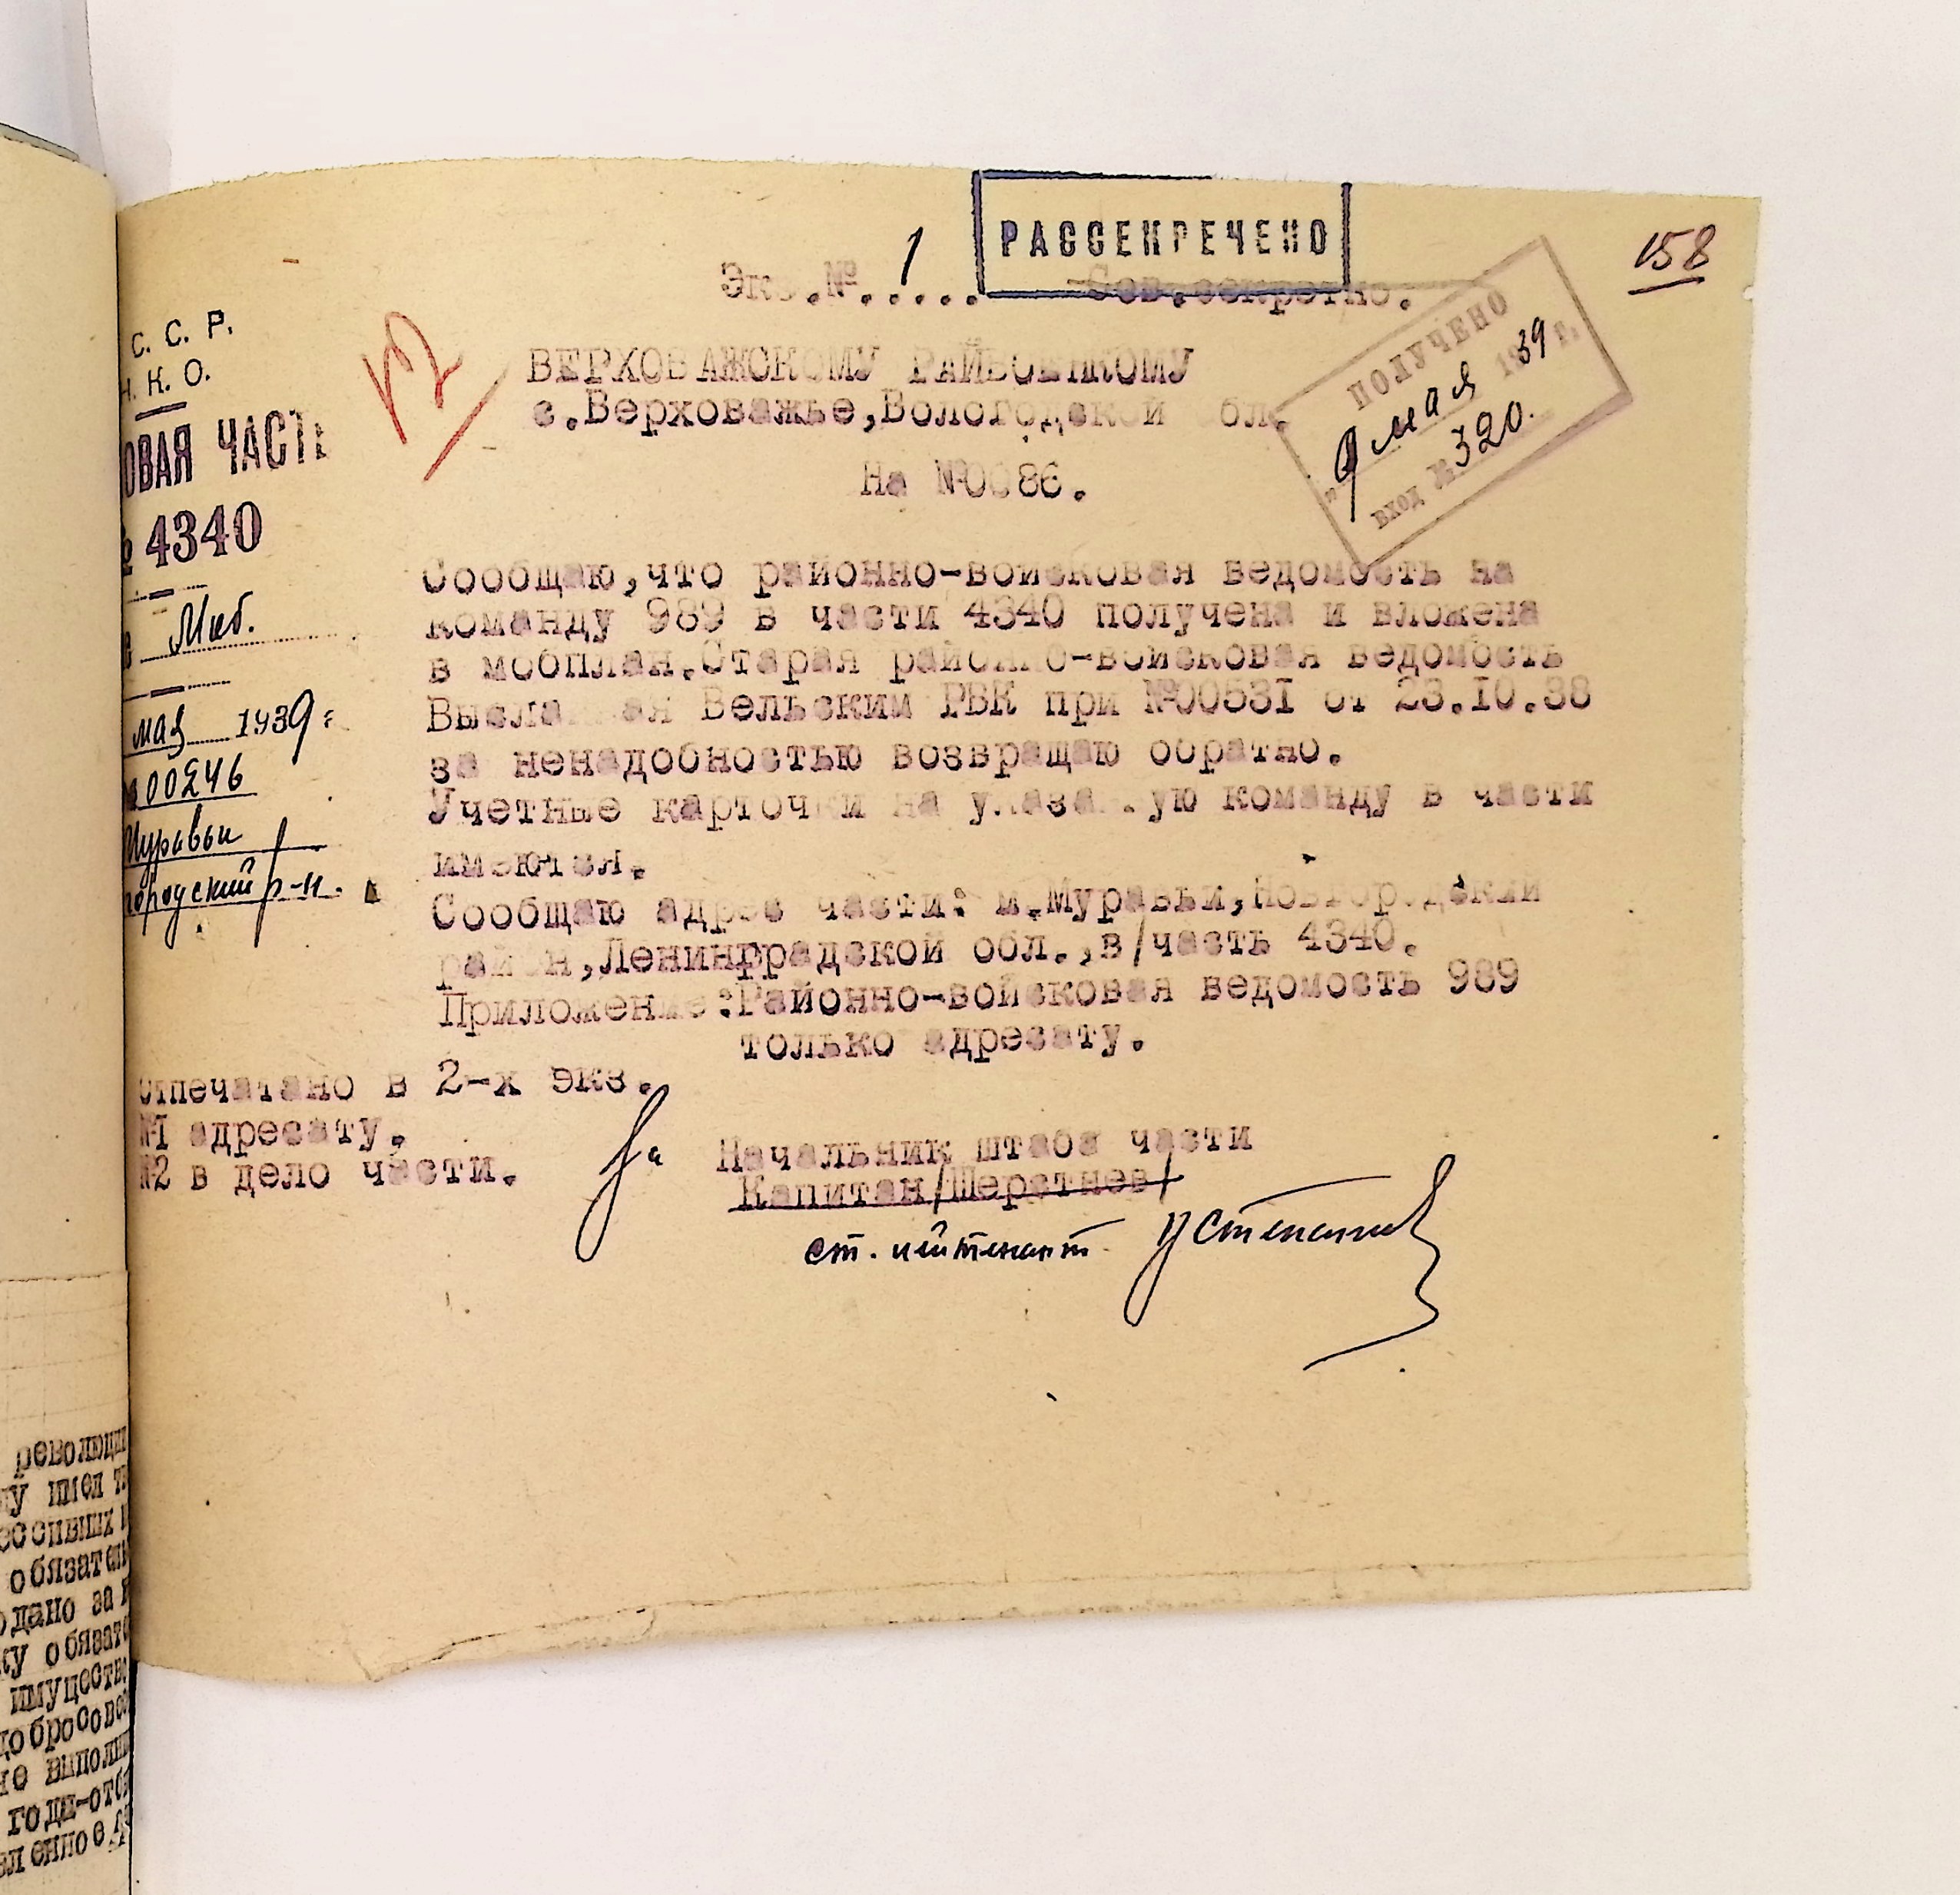 РАССЕКРЕЧЕНО
158
Экз.№.....
1
Сов.секретно.
С. С. Р.
Н. К. О.
ОВАЯ ЧАСТЬ
№ 4340
Моб.
мая 1939 г
№ 00246
Муравьи
городский р-н.
ПОЛУЧЕНО
"9 мая 1939 г.
вход № 320.
ВЕРХОВАЖСКОМУ РАЙВОЕНКОМУ
с.Верховажье,Вологодской обл.
На №0086.
Сообщаю,что районно-войсковая ведомость на
команду 989 в части 4340 получена и вложена
в мобплан.Старая районно-войсковая ведомость
Высланная Вельским РВК при №00531 от 23.10.38
за ненадобностью возвращаю обратно.
Учетные карточки на указанную команду в части
имеются.
Сообщаю адрес части: м.Муравьи,Новгородский
район,Ленинградской обл.,в/часть 4340.
Приложение:Районно-войсковая ведомость 989
только адресату.
Отпечатано в 2-х экз.
№1 адресату.
№2 в дело части.
За Начальник штаба части
Капитан/Шерстнев/
ст. лейтенант
революци
у имел т
ессивных
обязател
одано за
ку обязат
имуществ
добросове
но выполн
года-отб
вленное